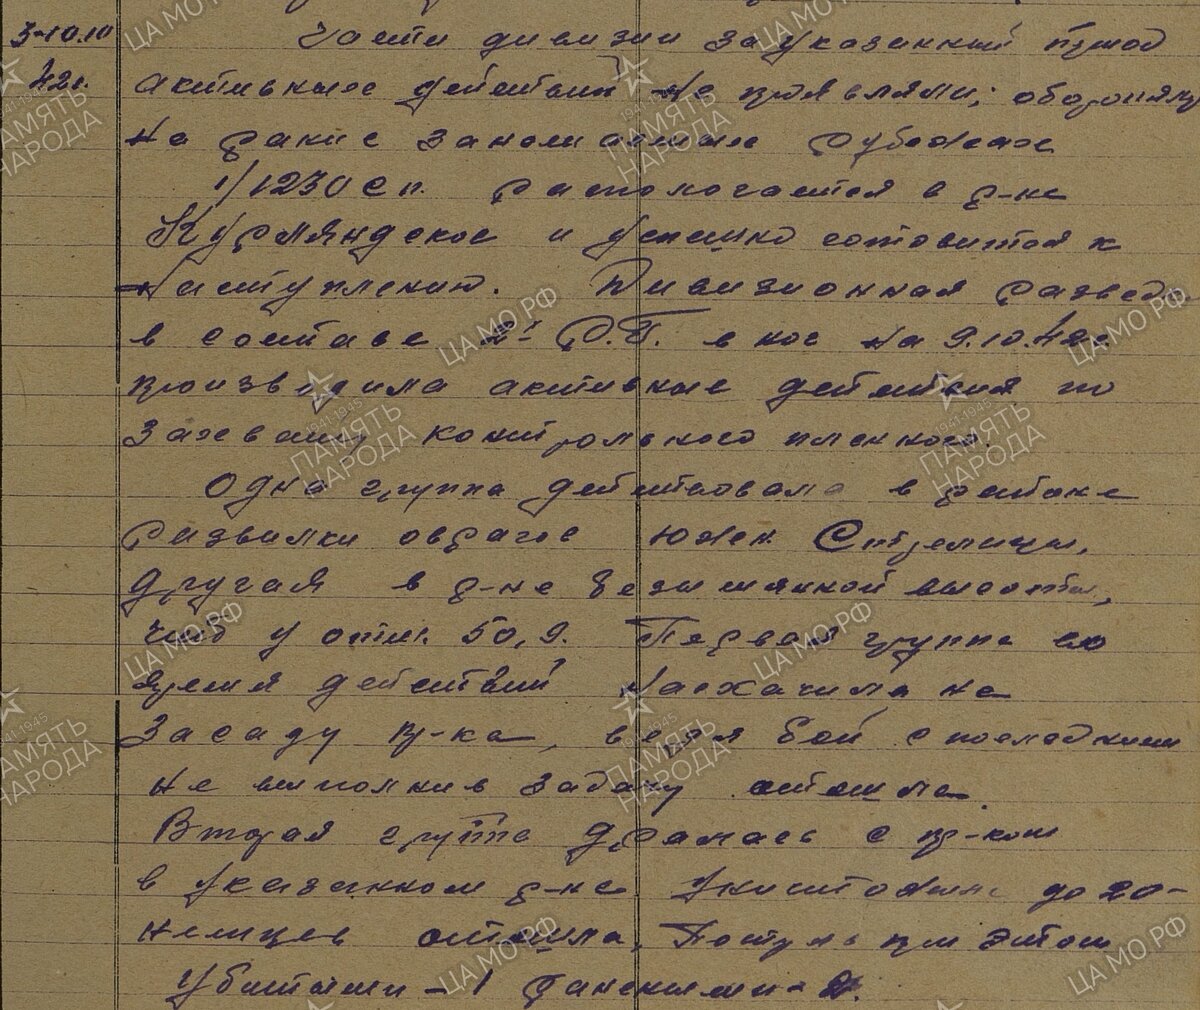 3-10.10 Части дивизии за указанный период
42г. активные действий не проявляли; обороняя
на ранее занимаемые рубежах
1/1230 С п. распологается в р-не
Курляндское и успешно готовится к
наступлению. Дивизионная развед
в составе 2х Р.Г. в ноч на 9.10.42г
производила активные действия по
захвату контрольного пленного.
Одна группа действовала в районе
развилки оврагов южнее Стрелицы,
другая в р-не безымянной высоты,
что у отм. 50,9. Первая группа во
время действий наскачила на
засаду пр-ка, ведя бой с последними
не выполнив задачу отошла.
Вторая группа дралась с пр-ком
в указанном р-не уничтожив до 20-
немцев отошла, Потери при этом
убитыми - 1 ранеными - 2.
ЦА МО РФ
1941-1945
ПАМЯТЬ
НАРОДА